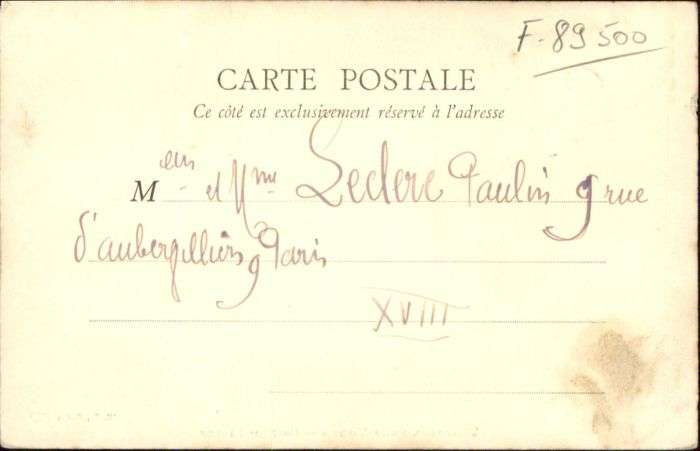 F-89500
CARTE POSTALE
Ce côté est exclusivement réservé à l'adresse
Meur et Mme Leclerc Paulin 9 rue
d'aubervilliers Paris
XVIII